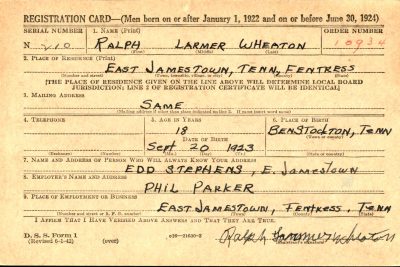 REGISTRATION CARD—(Men born on or after January 1, 1922 and on or before June 30, 1924)
SERIAL NUMBER 1. NAME (Print) ORDER NUMBER
N 210 RALPH LARMER WHEATON 10934
(First) (Middle) (Last)
2. PLACE OF RESIDENCE (Print)
EAST JAMESTOWN, TENN, FENTRESS
[THE PLACE OF RESIDENCE GIVEN ON THE LINE ABOVE WILL DETERMINE LOCAL BOARD
JURISDICTION; LINE 2 OF REGISTRATION CERTIFICATE WILL BE IDENTICAL]
3. MAILING ADDRESS
SAME
(Mailing address if other than place indicated on line 2. If same insert word same)
4. TELEPHONE 5. AGE IN YEARS 6. PLACE OF BIRTH
18 BENSTOCKTON, TENN
DATE OF BIRTH
SEPT 20 1923
7. NAME AND ADDRESS OF PERSON WHO WILL ALWAYS KNOW YOUR ADDRESS
EDD STEPHENS, E. JAMESTOWN
8. EMPLOYER'S NAME AND ADDRESS
PHIL PARKER
9. PLACE OF EMPLOYMENT OR BUSINESS
EAST JAMESTOWN, FENTRESS, TENN
I AFFIRM THAT I HAVE VERIFIED ABOVE ANSWERS AND THAT THEY ARE TRUE.
D. S. S. Form 1
(Revised 6-1-42) (over) Ralph Larmer Wheaton